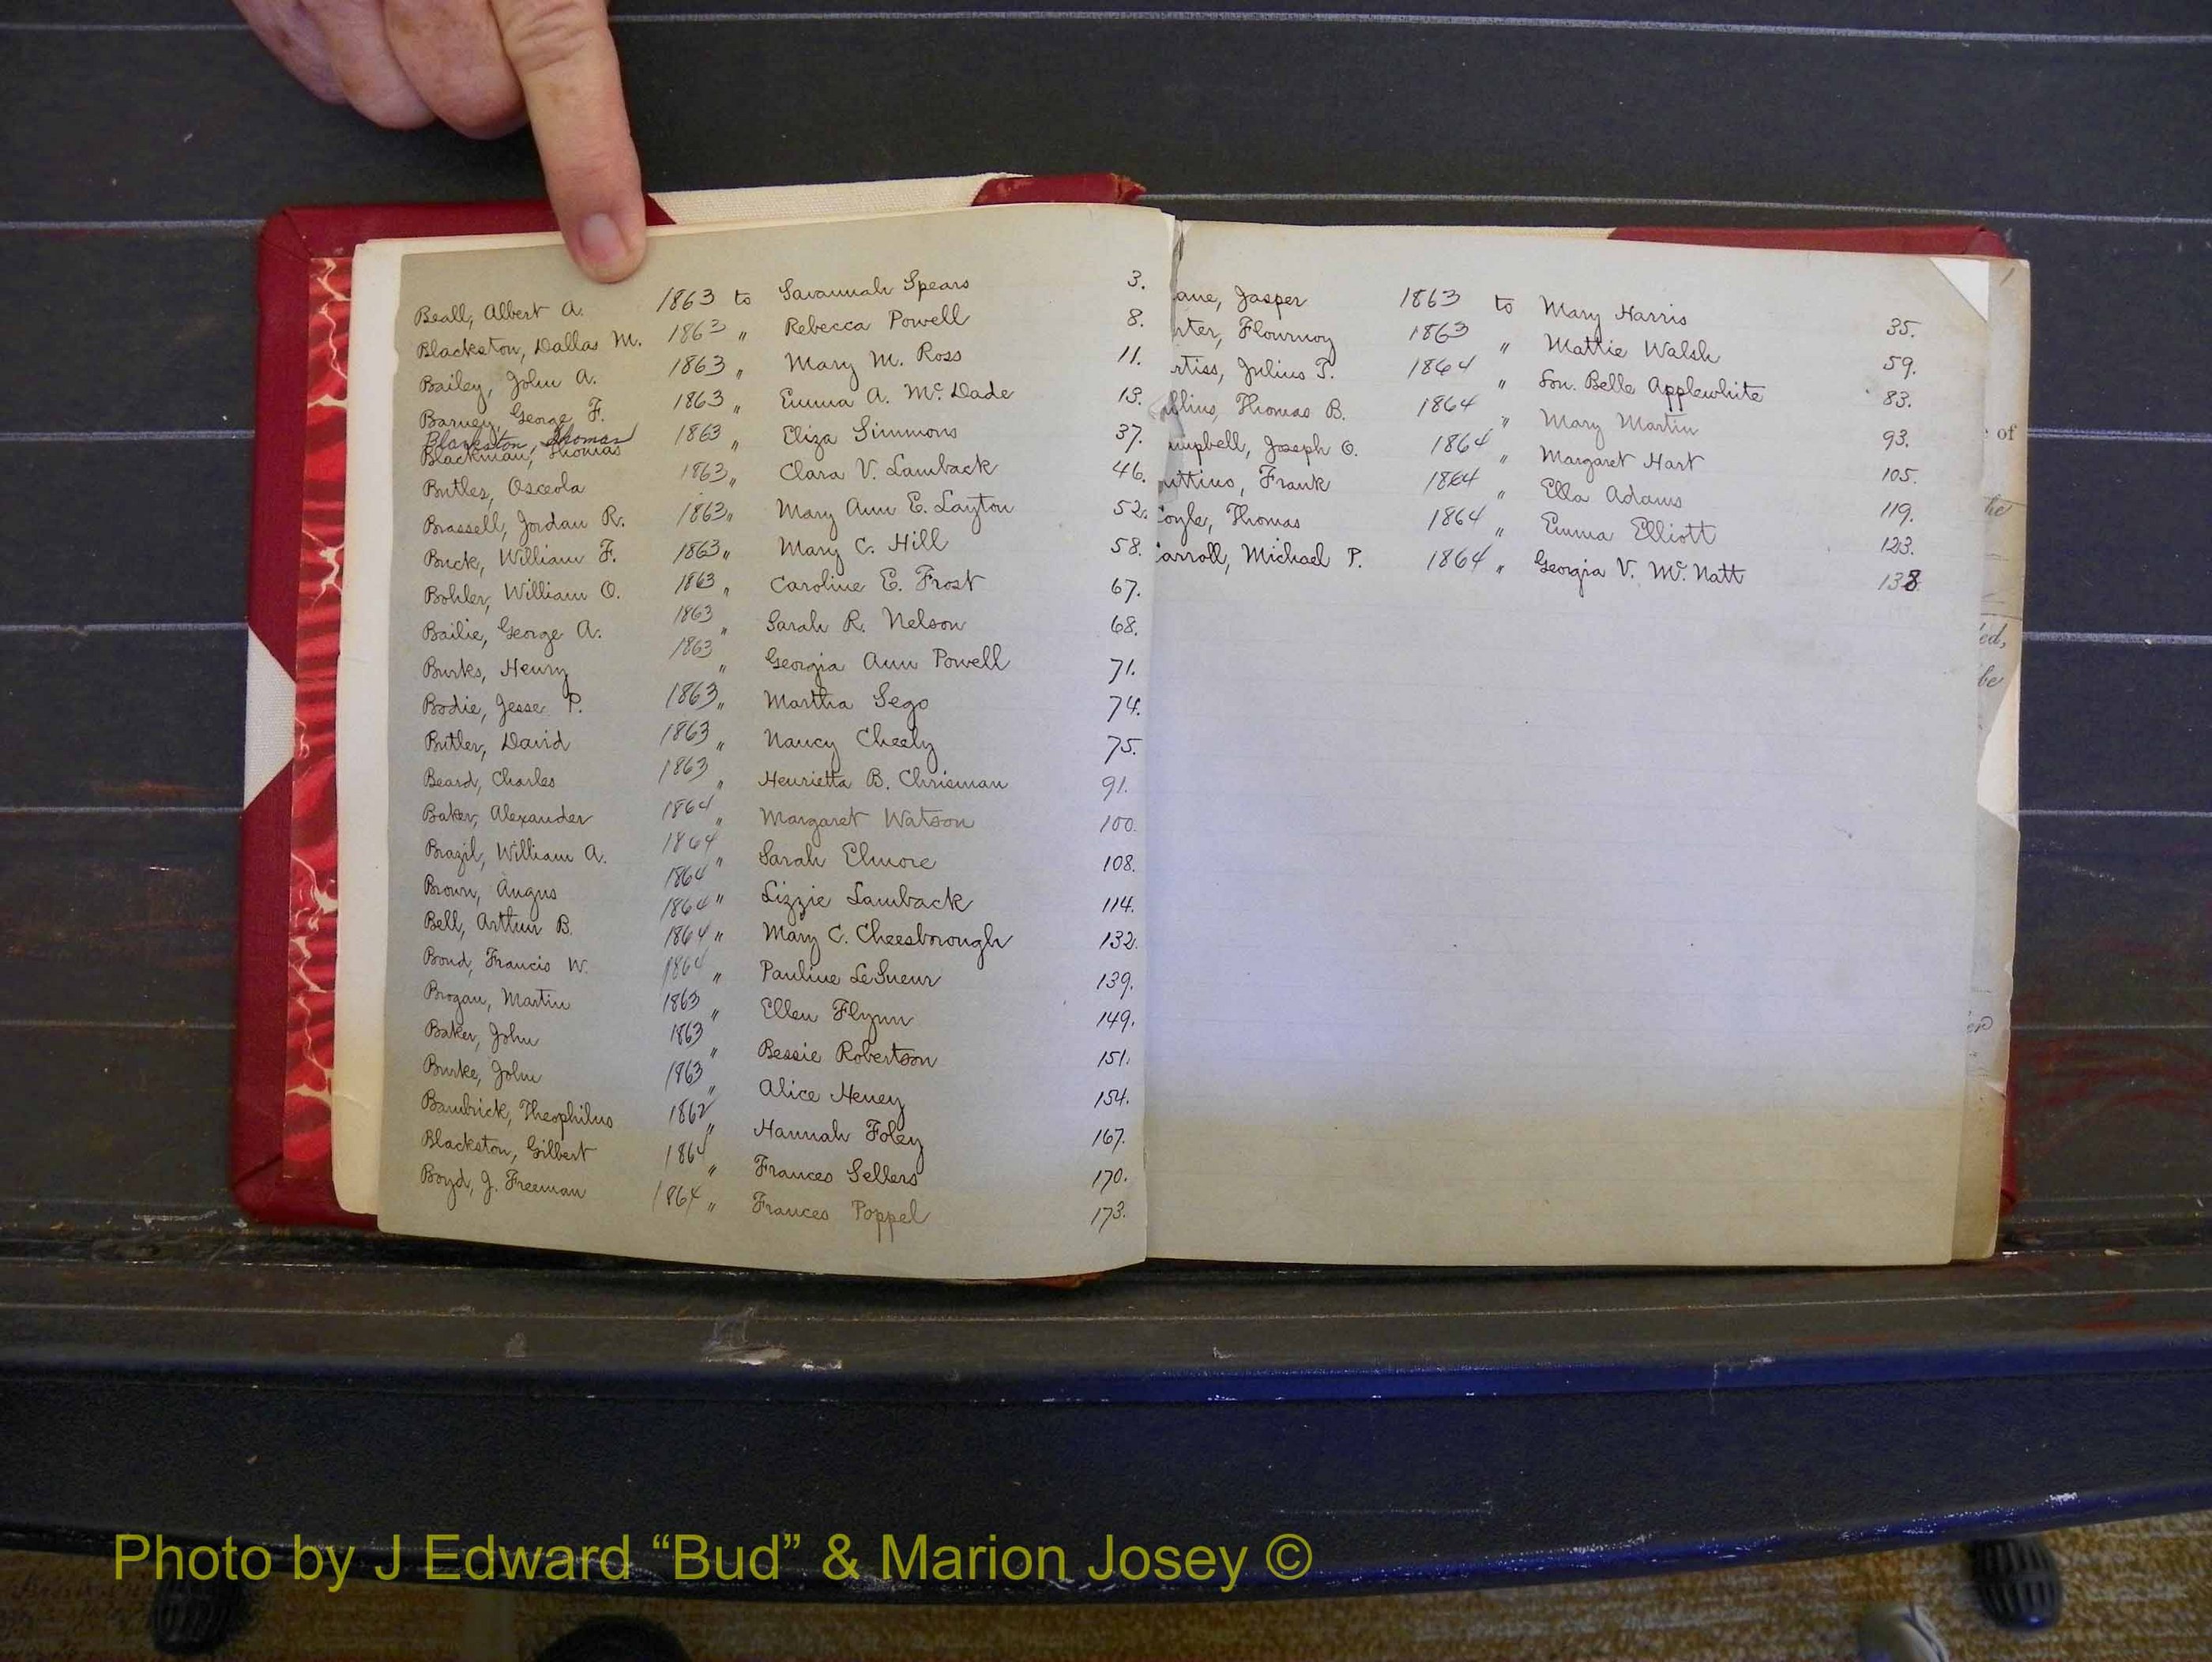 Beall, Albert A. 1863 to Savannah Spears 3.
Blackston, Dallas M. 1863 " Rebecca Powell 8.
Bailey, John A. 1863 " Mary M. Ross 11.
Barney, George F. 1863 " Emma A. McDade 13.
Blankston, Thomas
Blackman, Thomas 1863 " Eliza Simmons 37.
Butler, Osceola 1863 " Clara V. Lamback 46.
Brassell, Jordan R. 1863 " Mary Ann E. Layton 52.
Buck, William F. 1863 " Mary C. Hill 58.
Bohler, William O. 1863 " Caroline E. Frost 67.
Bailie, George A. 1863 " Sarah R. Nelson 68.
Burks, Henry 1863 " Georgia Ann Powell 71.
Bodie, Jesse P. 1863 " Martha Sego 74.
Butler, David 1863 " Nancy Cheely 75.
Beard, Charles 1863 " Henrietta B. Chrisman 91.
Baker, Alexander 1864 " Margaret Watson 100.
Brazil, William A. 1864 " Sarah Elmore 108.
Brown, Angus 1864 " Lizzie Lamback 114.
Bell, Arthur B. 1864 " Mary C. Cheesborough 132.
Bond, Francis W. 1864 " Pauline LeSueur 139.
Brogan, Martin 1864 " Ellen Flynn 149.
Baker, John 1863 " Bessie Robertson 151.
Burke, John 1863 " Alice Heney 154.
Bambrick, Theophilus 1863 " Hannah Foley 167.
Blackston, Gilbert 1862 " Frances Sellers 170.
Boyd, J. Freeman 1864 " Frances Poppel 173.
1864 "
ane, Jasper 1863 to Mary Harris 35.
rter, Flournoy 1863 " Mattie Walsh 59.
rtiss, Julius T. 1864 " Lou. Belle Applewhite 83.
llins, Thomas B. 1864 " Mary Martin 93.
mpbell, Joseph O. 1864 " Margaret Hart 105.
uttino, Frank 1864 " Ella Adams 119.
Coyle, Thomas 1864 " Emma Elliott 123.
Carroll, Michael P. 1864 " Georgia V. McNatt 138.
1
of
he
ed,
be
Photo by J Edward “Bud” & Marion Josey ©